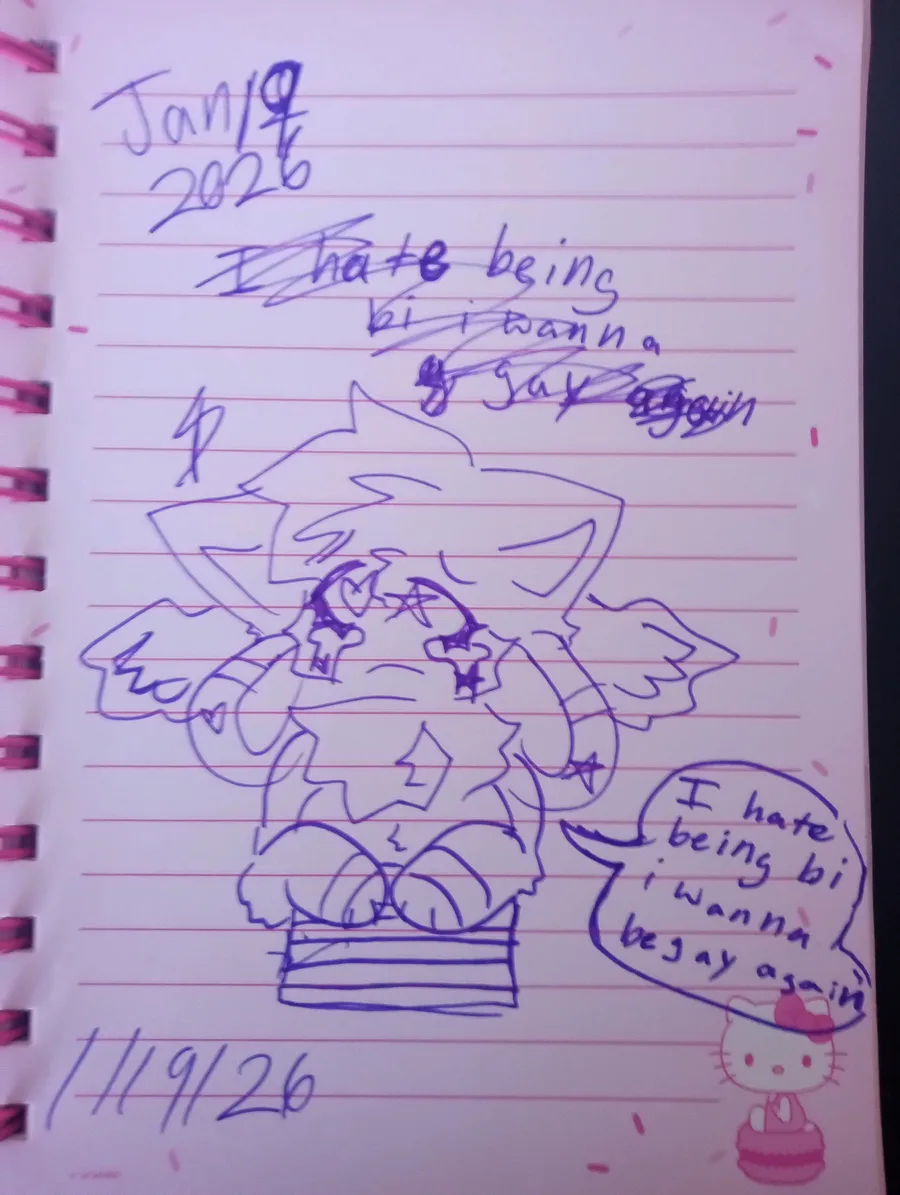 Jan/19
2026
I hate being
bi i wanna
gay again
I hate
being bi
i wanna
be gay again
1/19/26